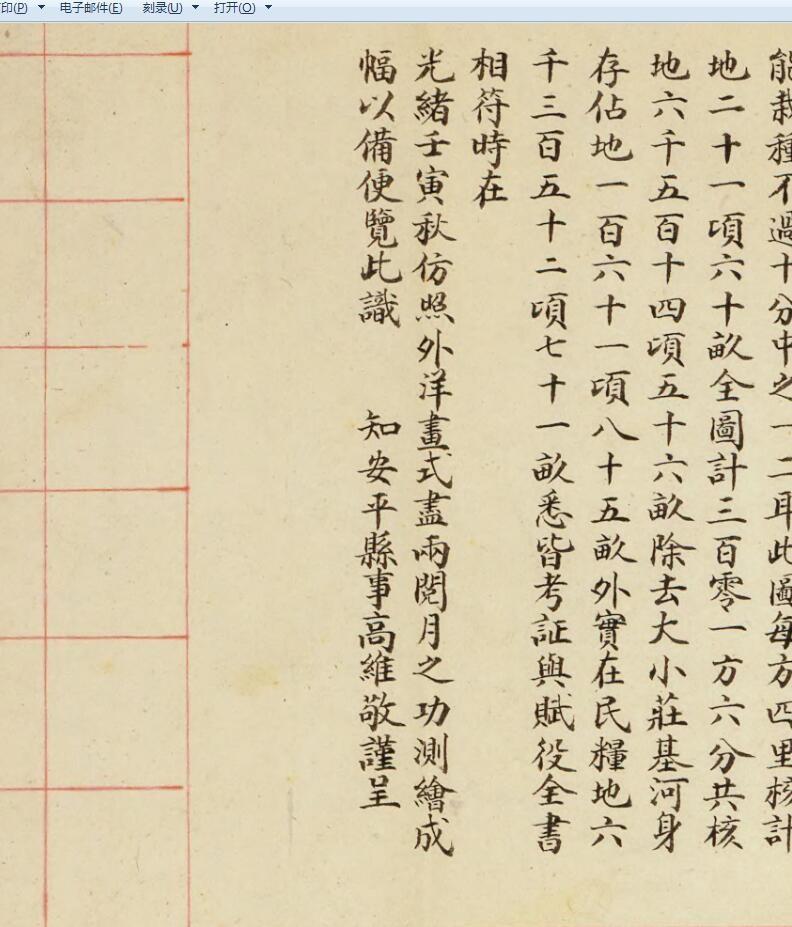 印(P) 电子邮件(E) 刻录(U) 打开(O)
能栽種不過十分中之一二耳此圖每方四里核計
地二十一項六十畝全圖計三百零一方六分共核
地六千五百十四項五十六畝除去大小莊基河身
存佔地一百六十一項八十五畝外實在民糧地六
千三百五十二項七十一畝悉皆考証與賦役全書
相符時在
光緒壬寅秋仿照外洋畫式盡兩閱月之功測繪成
幅以備便覽此識 知安平縣事高維敬謹呈